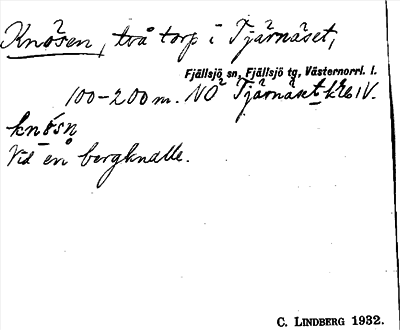 Knösen, två torp i Tjärnäset,
Fjällsjö sn, Fjällsjö tg, Västernorrl. l.
100-200 m. NO Tjärnäset
knösn
Vid en bergknalle.
C. LINDBERG 1932.